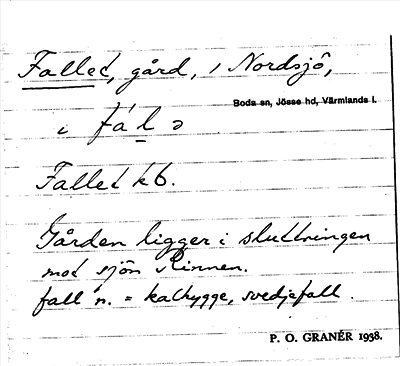 Fallet, gård, i Nordsjö,
Boda sn, Jösse hd, Värmlands l.
i fàlə
Fallet kb.
Gården ligger i sluttningen
mot sjön Rinnen.
fall n. = kalhygge, svedjefall.
P. O. GRANÉR 1938.